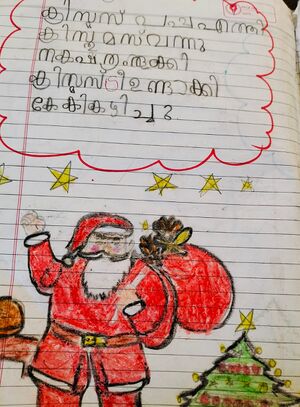 ക്രിസ്മസ് പാപ്പ എത്തി
ക്രിസ്മസ് വന്നു
നക്ഷത്രം തൂക്കി
ക്രിസ്മസ് ട്രീ ഉണ്ടാക്കി
കേക്ക് കഴിച്ചു